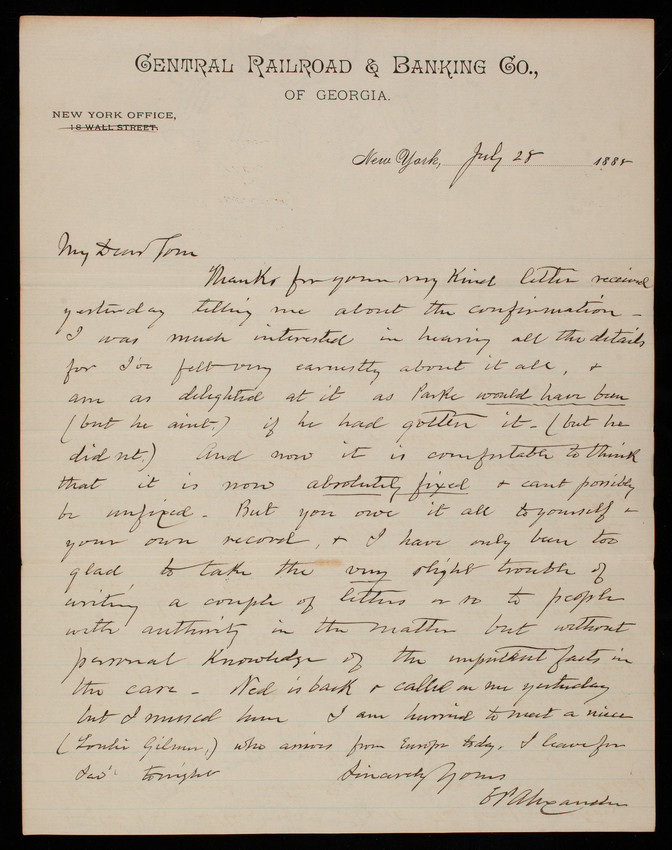 CENTRAL RAILROAD & BANKING CO.,
OF GEORGIA.
NEW YORK OFFICE,
18 WALL STREET.
New York, July 28 1888
My Dear Tom
Thanks for your my kind letter received
yesterday telling me about the confirmation –
I was much interested in hearing all the details
for I've felt very earnestly about it all, &
am as delighted at it as Parke would have been
(but he aint.) if he had gotten it – (but he
did nt.) And now it is comfortable to think
that it is now absolutely fixed & cant possibly
be unfixed – But you owe it all to yourself &
your own record, & I have only been too
glad to take the very slight trouble of
writing a couple of letters or so to people
with authority in the matter but without
personal knowledge of the important facts in
the case – Ned is back & called on me yesterday
but I missed him I am hurried to meet a niece
(Louise Gilmer,) who arrives from Europe today. I leave for
Sav: tonight Sincerely Yours
EP Alexander